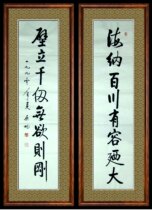 海纳百川有容廼大
壁立千仞無欲則剛